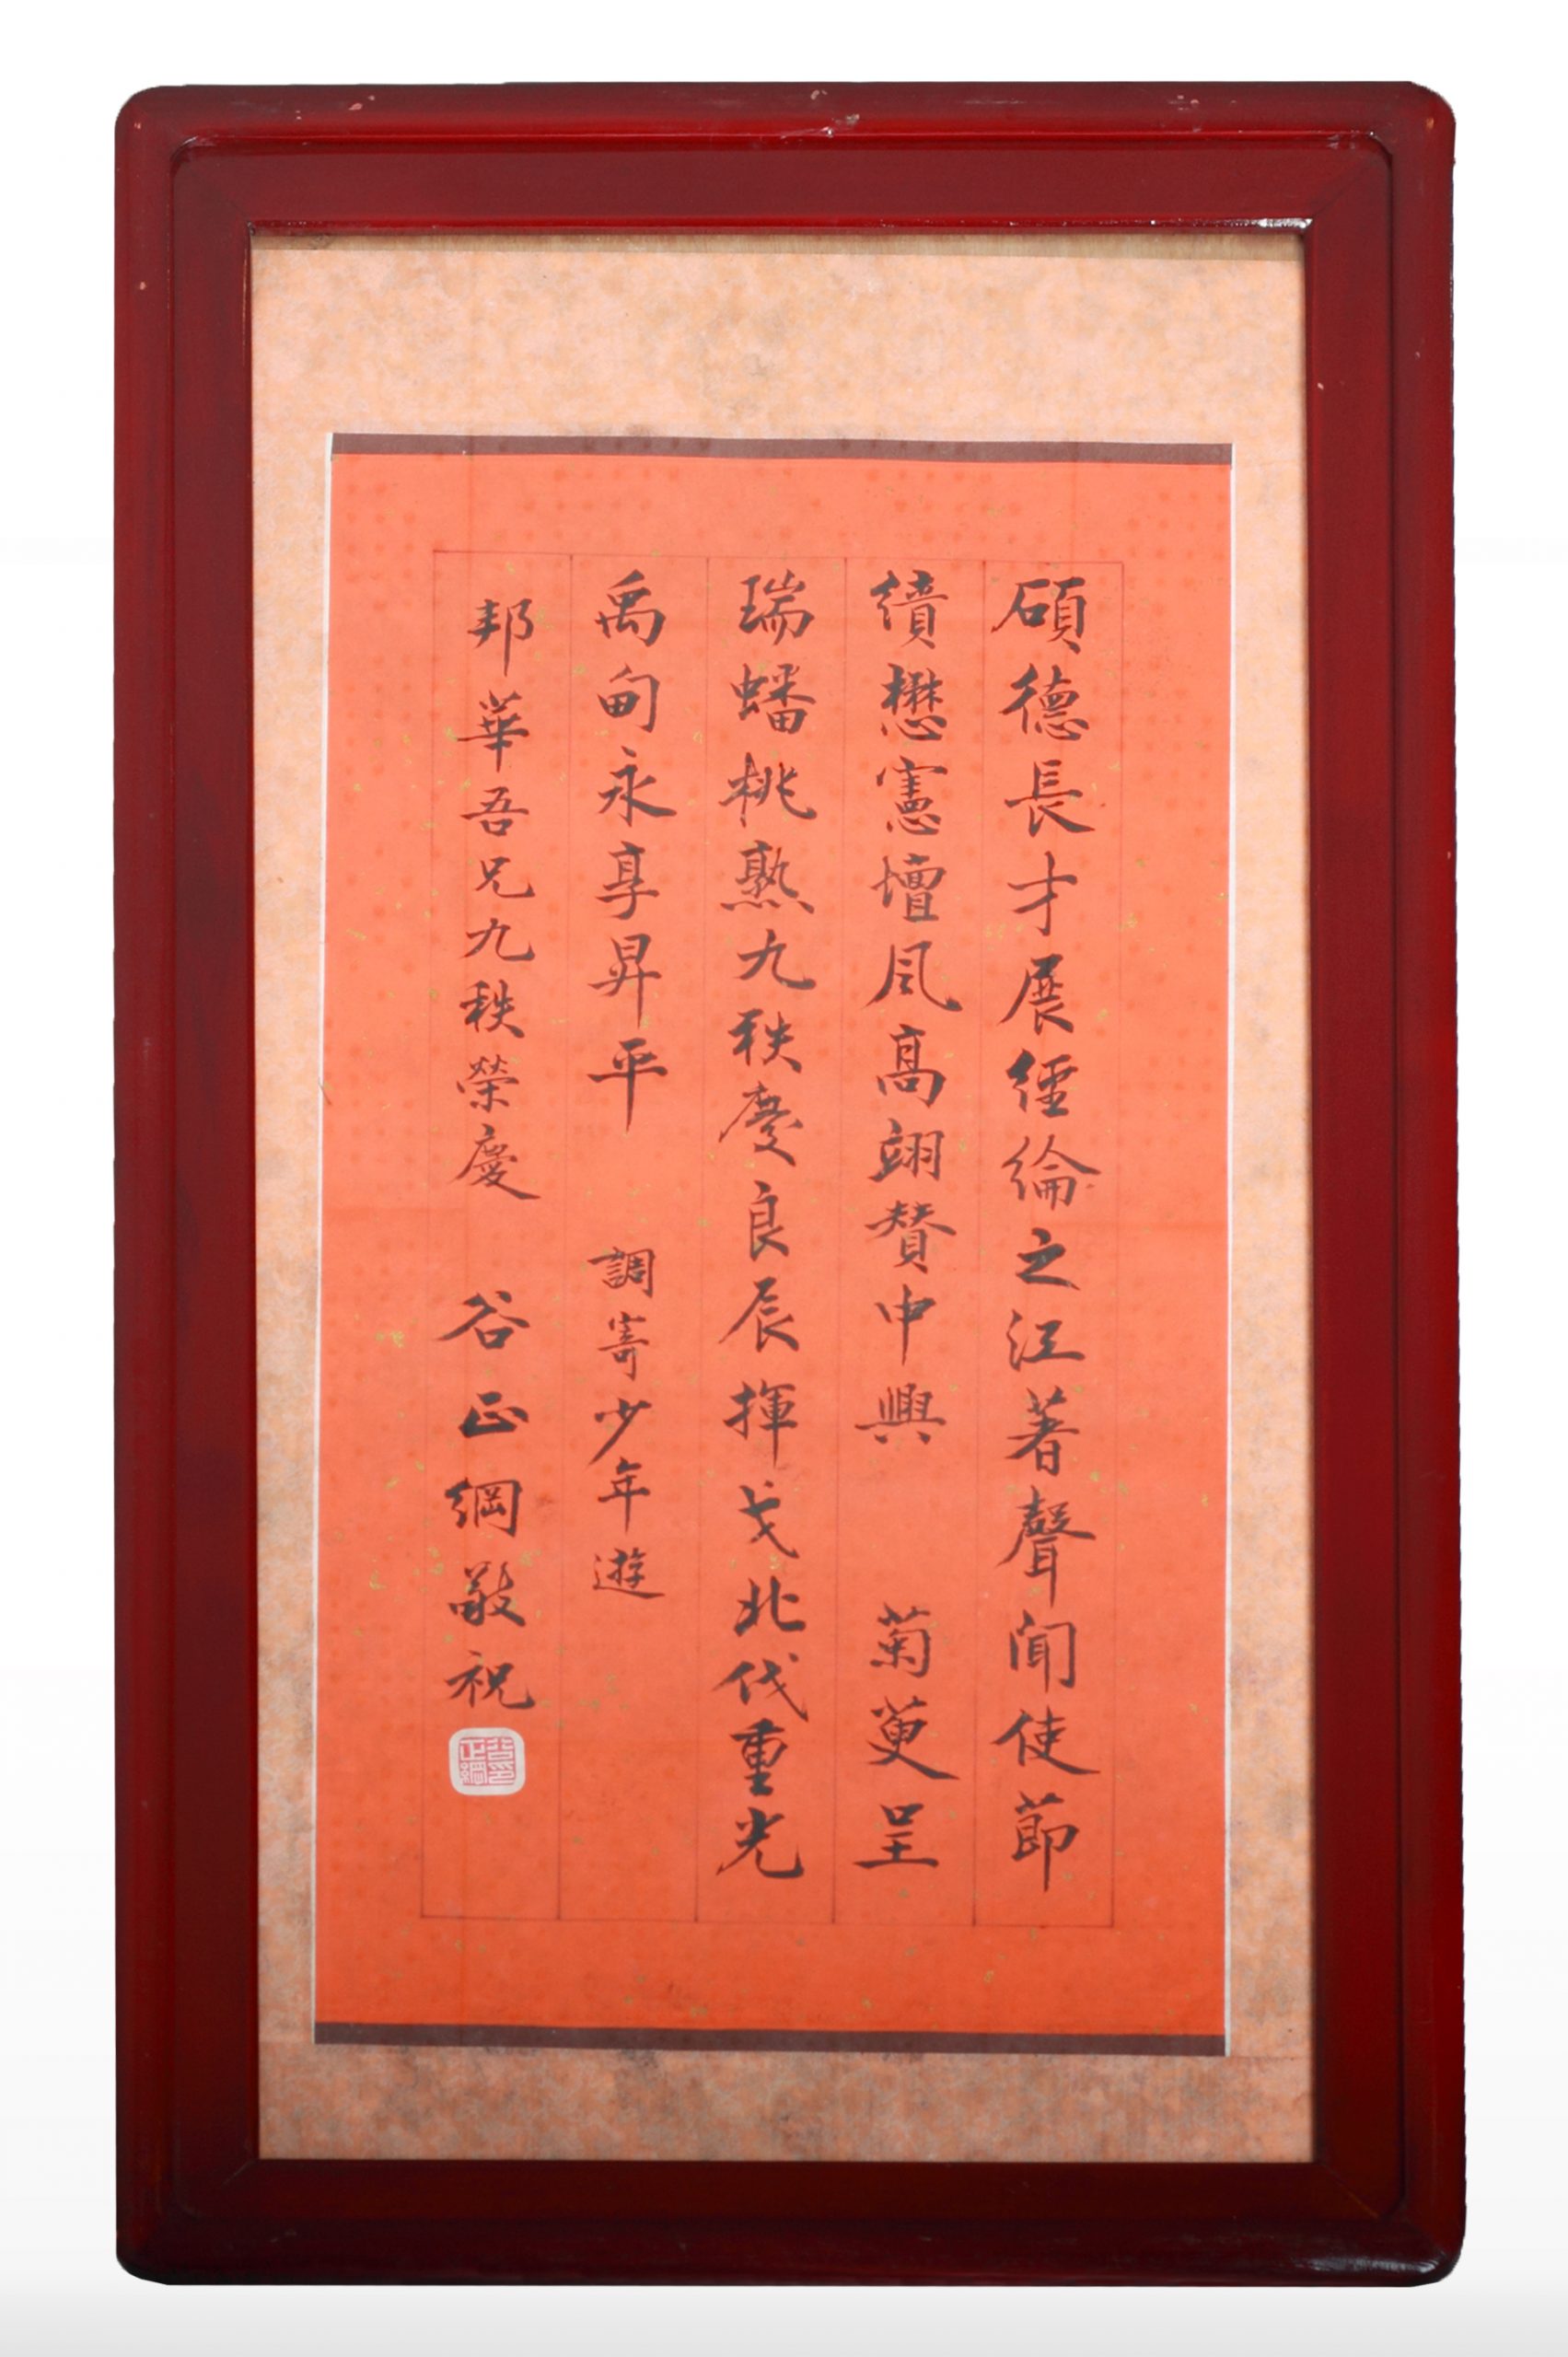 碩德長才展經綸之江著聲聞使節
績懋憲壇風高翊贊中興　菊萸呈
瑞蟠桃熟九秩慶良辰揮戈北伐重光
禹甸永享昇平　調寄少年遊
邦華吾兄九秩榮慶　谷正綱敬祝
谷正綱印